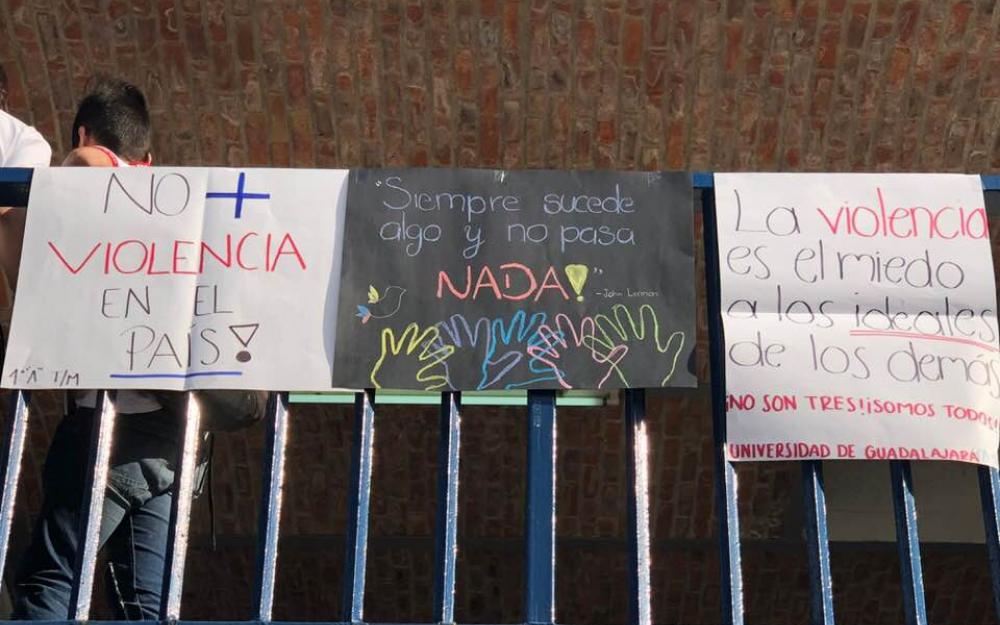 NO +
VIOLENCIA
EN EL
PAÍS!
1°"A" T/M
"Siempre sucede
algo y no pasa
NADA!"
-John Lennon
La violencia
es el miedo
a los ideales
de los demás
¡NO SON TRES!¡SOMOS TODOS!
UNIVERSIDAD DE GUADALAJARA